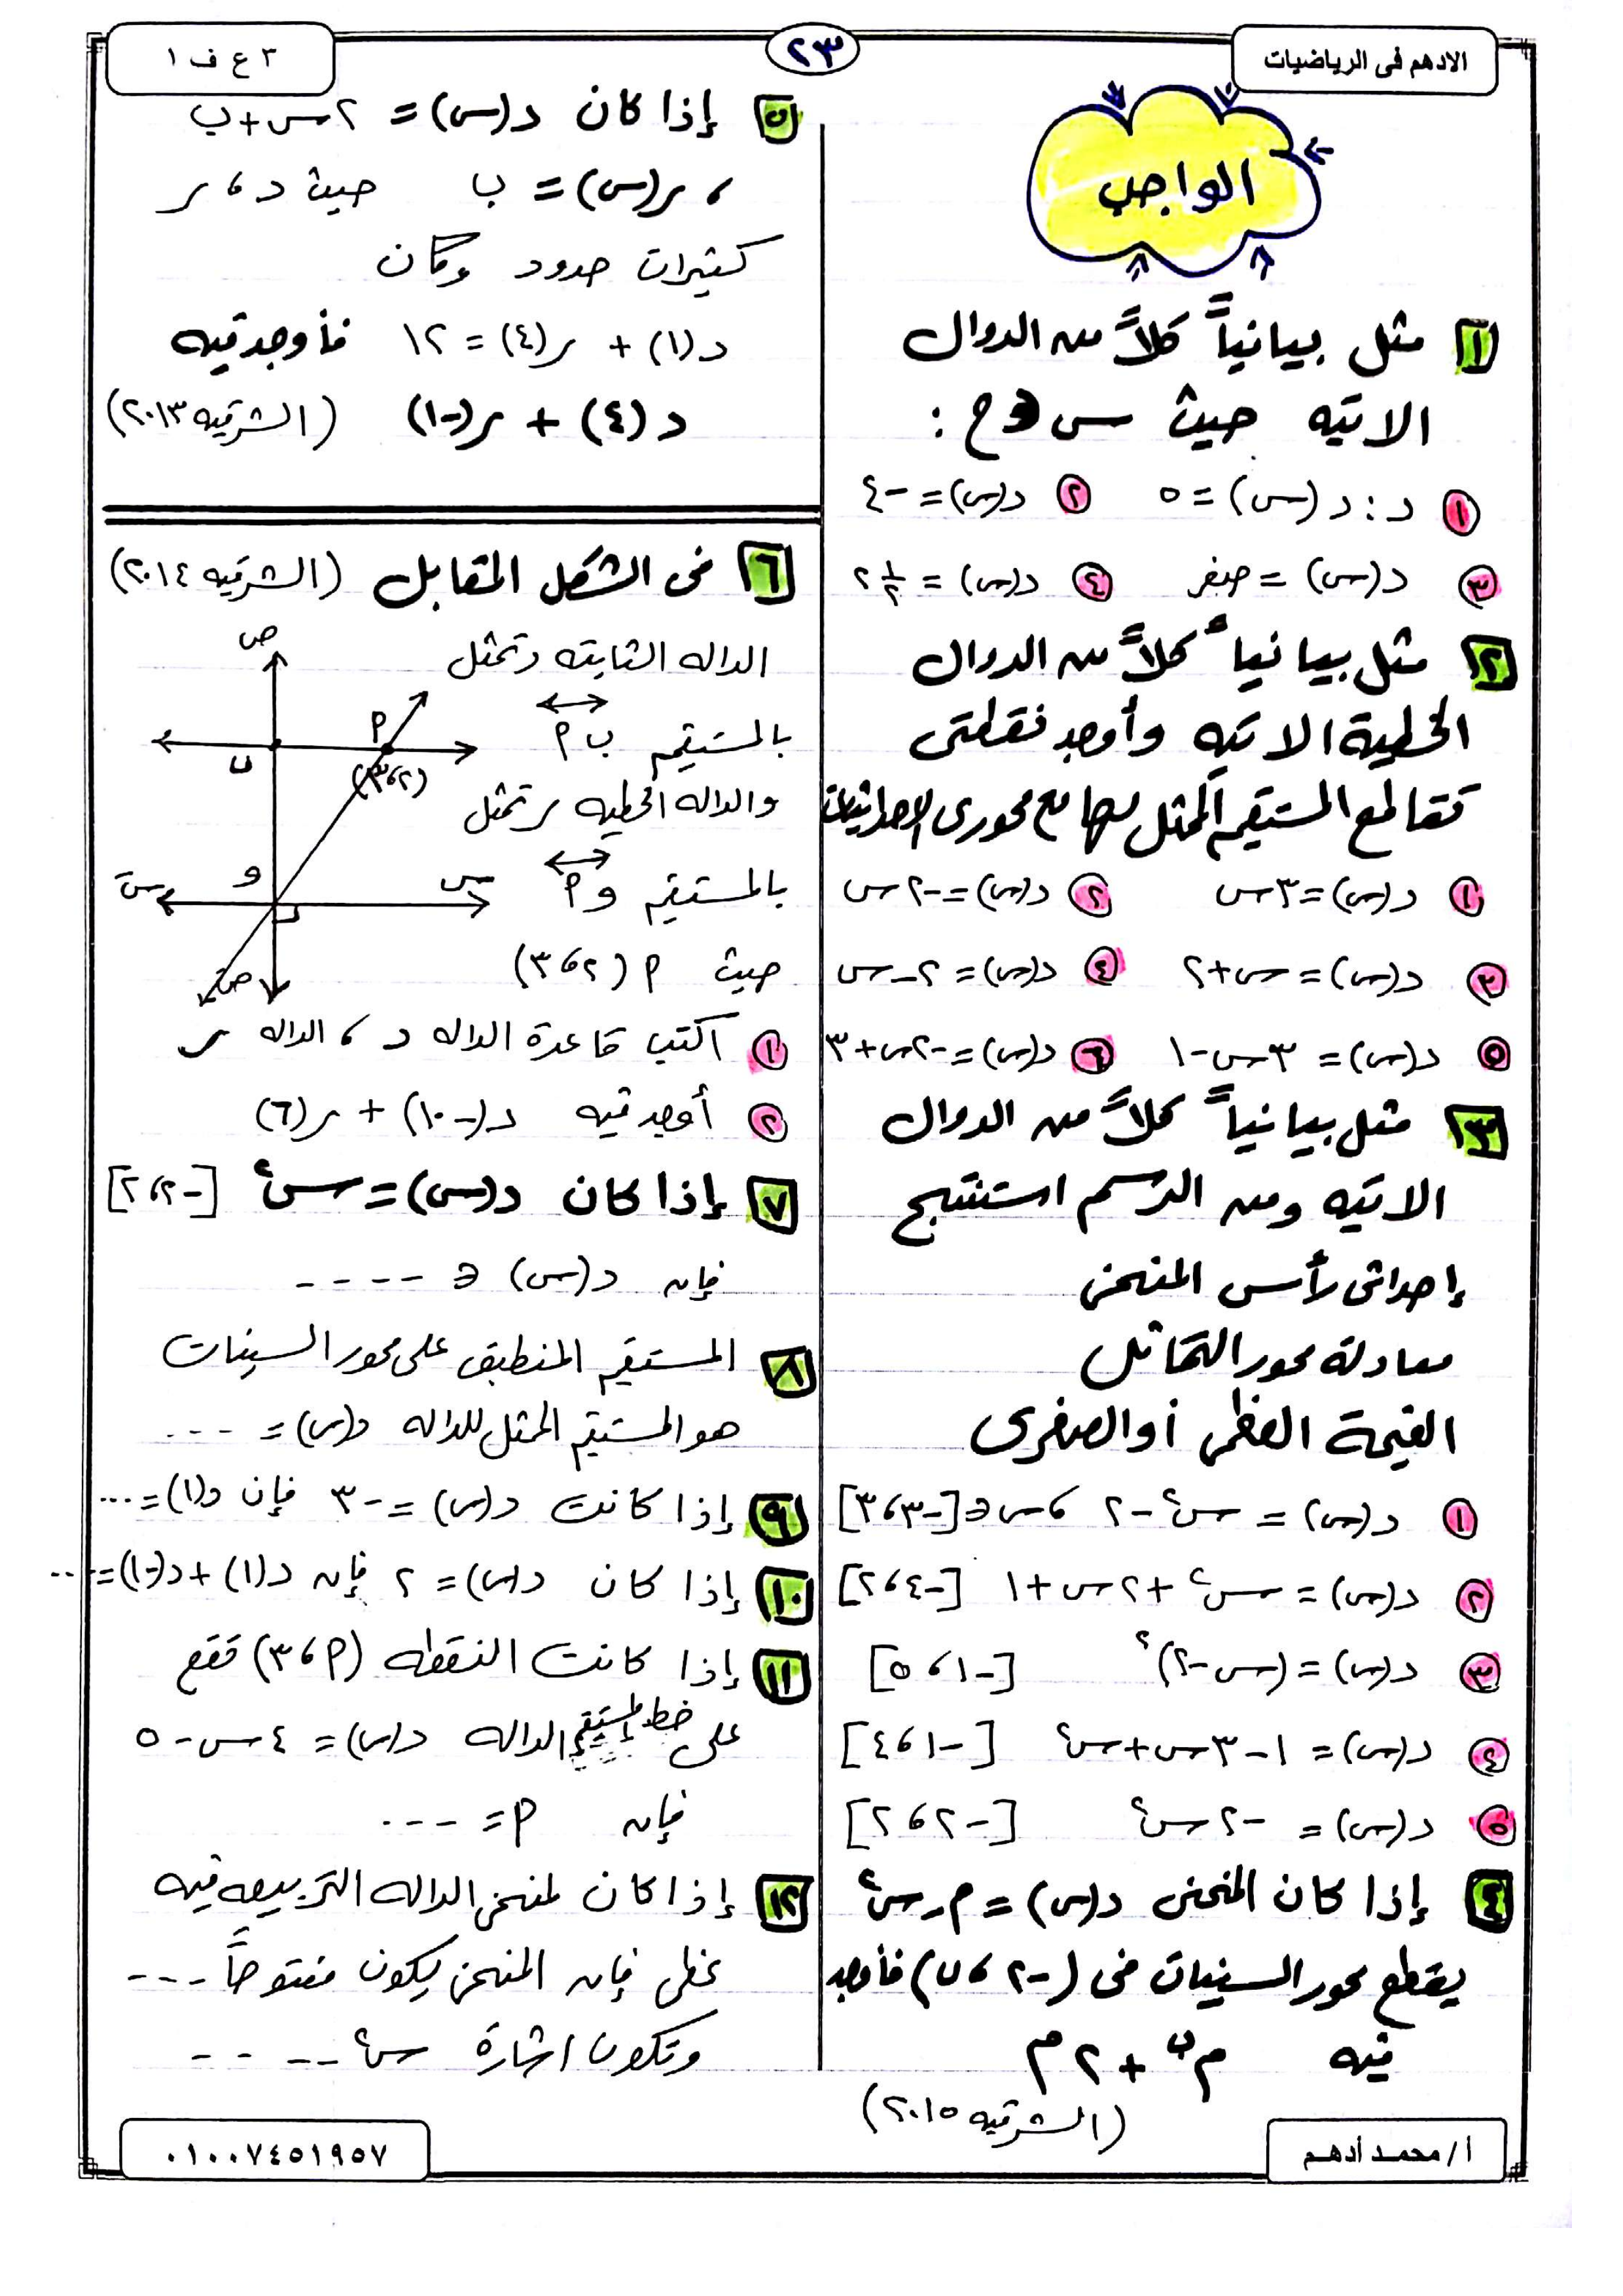 الادهم فى الرياضيات
٢٣
٣ ع ف ١
الواجب
١ مثل بيانياً كلاً من الدوال
الاتيه حيث س ∈ ح :
١ د : د (س) = ٥
٢ د(س) = -٤
٣ د(س) = صفر
٤ د(س) = ٢ ١/٢
٢ مثل بيانياً كلاً من الدوال
الخطية الاتيه وأوجد نقطتى
تقاطع المستقيم الممثل لها مع محورى الاحداثيات
١ د(س) = ٣س
٢ د(س) = -٢س
٣ د(س) = س+٢
٤ د(س) = ٢-س
٥ د(س) = ٣س-١
٦ د(س) = -٢س+٣
٣ مثل بيانياً كلاً من الدوال
الاتيه ومن الرسم استنتج
إحداثى رأس المنحنى
معادلة محور التماثل
القيمة العظمى أو الصغرى
١ د(س) = س² - ٢ ، س ∈ [-٣ ، ٣]
٢ د(س) = س² + ٢س + ١ [-٤ ، ٢]
٣ د(س) = (س-٢)² [-١ ، ٥]
٤ د(س) = ١ - ٣س + س² [-١ ، ٤]
٥ د(س) = -٢س² [-٢ ، ٢]
٤ إذا كان المنحنى د(س) = م - س²
يقطع محور السينات فى (-٢ ، ن) فأوجد
قيمه م^ن + ٢م
(الشرقيه ٢٠١٥)
٥ إذا كان د(س) = ٢س + ب
، ر(س) = ب حيث د ، ر
كثيرات حدود وكان
د(١) + ر(٤) = ١٢ فأوجد قيمه
د(٤) + ر(-١) (الشرقيه ٢٠١٣)
٦ فى الشكل المقابل (الشرقيه ٢٠١٤)
الداله الثابته د تمثل
بالمستقيم ب م
والداله الخطيه ر تمثل
بالمستقيم و م
حيث م (٢ ، ٣)
ص
م
ب
(٢ ، ٣)
و
س
سَ
صَ
١ اكتب قاعدة الداله د ، الداله ر
٢ أوجد قيمه د(-١٠) + ر(٦)
٧ إذا كان د(س) = س² [-٢ ، ٢]
فإن د(س) ∈ ----
٨ المستقيم المنطبق على محور السينات
هو المستقيم الممثل للداله د(س) = ---
٩ إذا كانت د(س) = -٣ فإن د(١) = ...
١٠ إذا كان د(س) = ٢ فإن د(١) + د(-١) = ...
١١ إذا كانت النقطه (م ، ٣) تقع
على خط مستقيم الداله د(س) = ٤س - ٥
فإن م = ---
١٢ إذا كان لمنحنى الداله التربيعيه قيمه
عظمى فإن المنحنى يكون مفتوحاً ---
وتكون اشارة س² ----
أ / محمد أدهم
٠١٠٠٧٤٥١٩٥٧